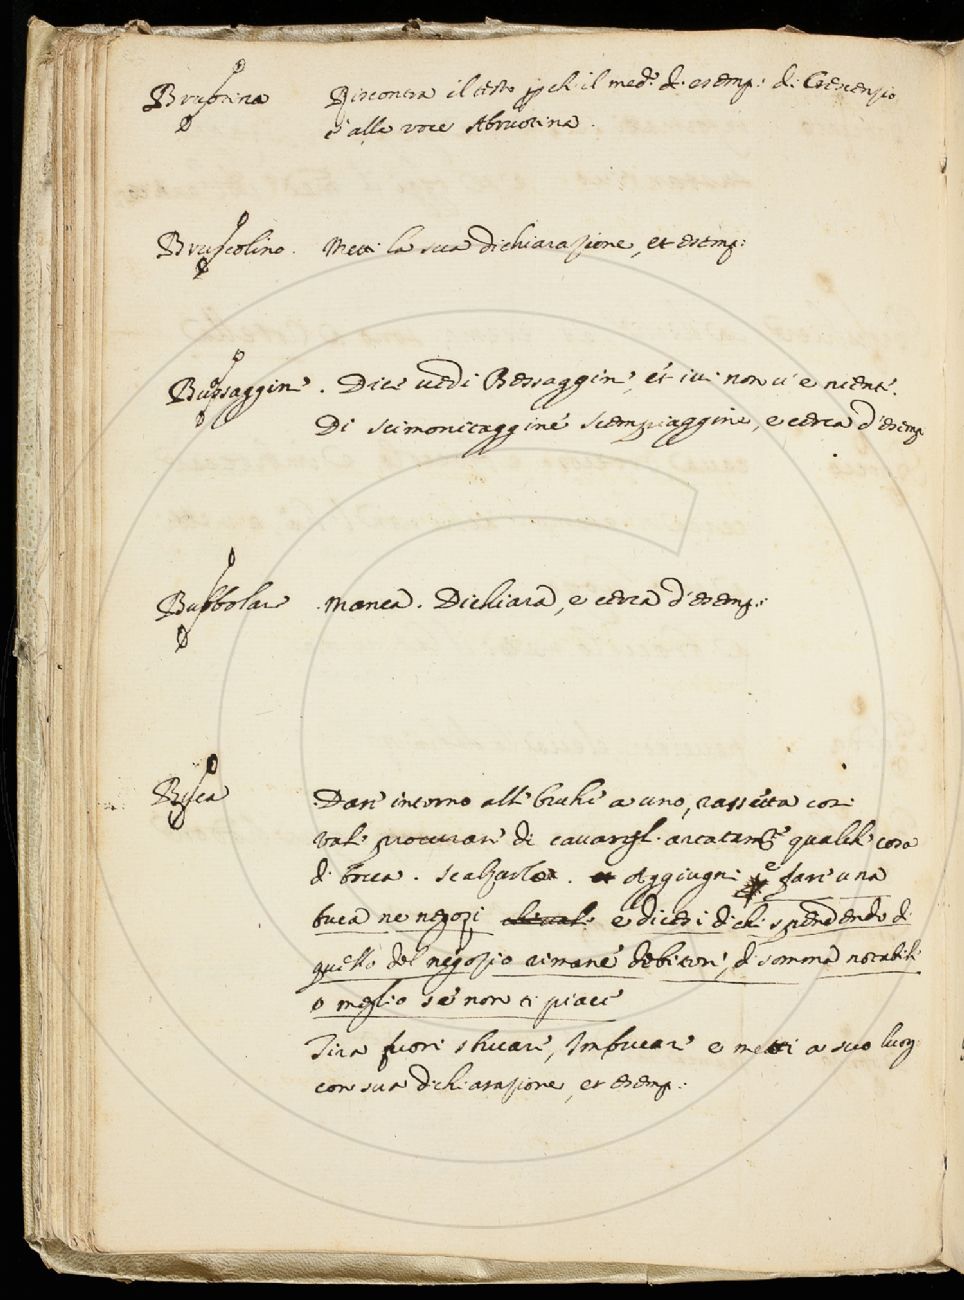 Bruotina Riscontra il testo pch il med.º di esemp: di Crescenzio
è alla voce Abruotina.
Bruscolino. Metti la sua dichiarazione, et esemp:
Bussaggine. Dice vedi Bessaggine, et ivi non v'è niente.
Di scimonitaggine scempiaggine, e cerca d'esemp
Bubbolare manca. Dichiara, e cerca d'esemp:
Buca Dare intorno alle buche a uno, rassetta così
vale procurare di cavargl. qualche cosa
di bocca. scalzarlo. Aggiugni e fare una
buca ne negozi e dicesi di chi spendendo di
quello del negozio rimane debitore, di somma notabile
o meglio se non ti piace
Tira fuori sbucare, Imbucare e metti a suo luog
con sua dichiarazione, et esemp: